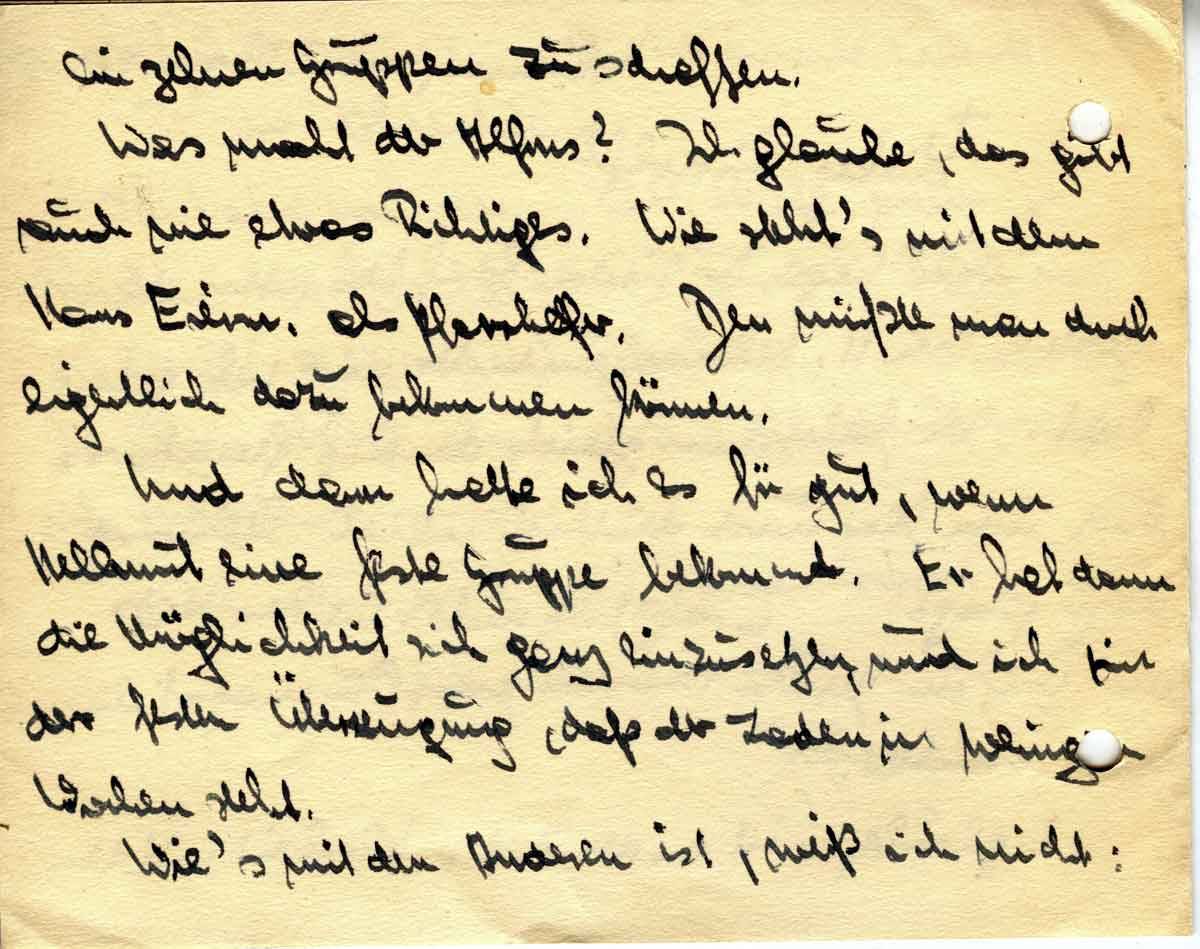 einzelnen Gruppen zu schaffen.
Was macht der Alfons? Ich glaube, das gibt
auch nie etwas Richtiges. Wie steht's mit dem
Hans als Pfarrhelfer. Den müßte man doch
eigentlich dazu bekommen können.
Und dann halte ich es für gut, wenn
Hellmut eine feste Gruppe bekommt. Er hat dann
die Möglichkeit sich ganz einzusetzen, und ich bin
der festen Überzeugung, daß der Laden in wenigen
Wochen steht.
Wie's mit den Anderen ist, weiß ich nicht: